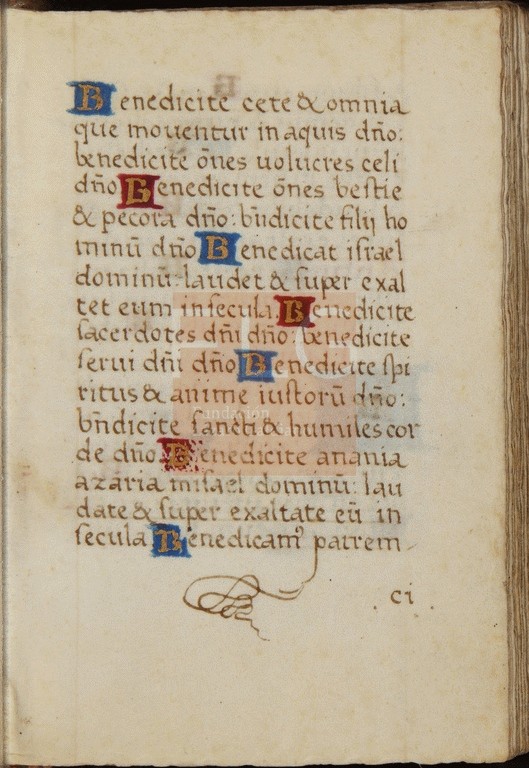 Benedicite cete & omnia
que mouentur in aquis dño:
benedicite õnes uolucres celi
dño Benedicite õnes bestie
& pecora dño: bñdicite filij ho
minũ dño Benedicat israel
dominũ: laudet & super exal
tet eum in secula. Benedicite
sacerdotes dñi dño: benedicite
serui dñi dño Benedicite spi
ritus & anime iustorũ dño:
bñdicite sancti & humiles cor
de dño. Benedicite anania
azaria misael dominũ: lau
date & super exaltate eũ in
secula Benedicamꝰ patrem
ci
Fundación